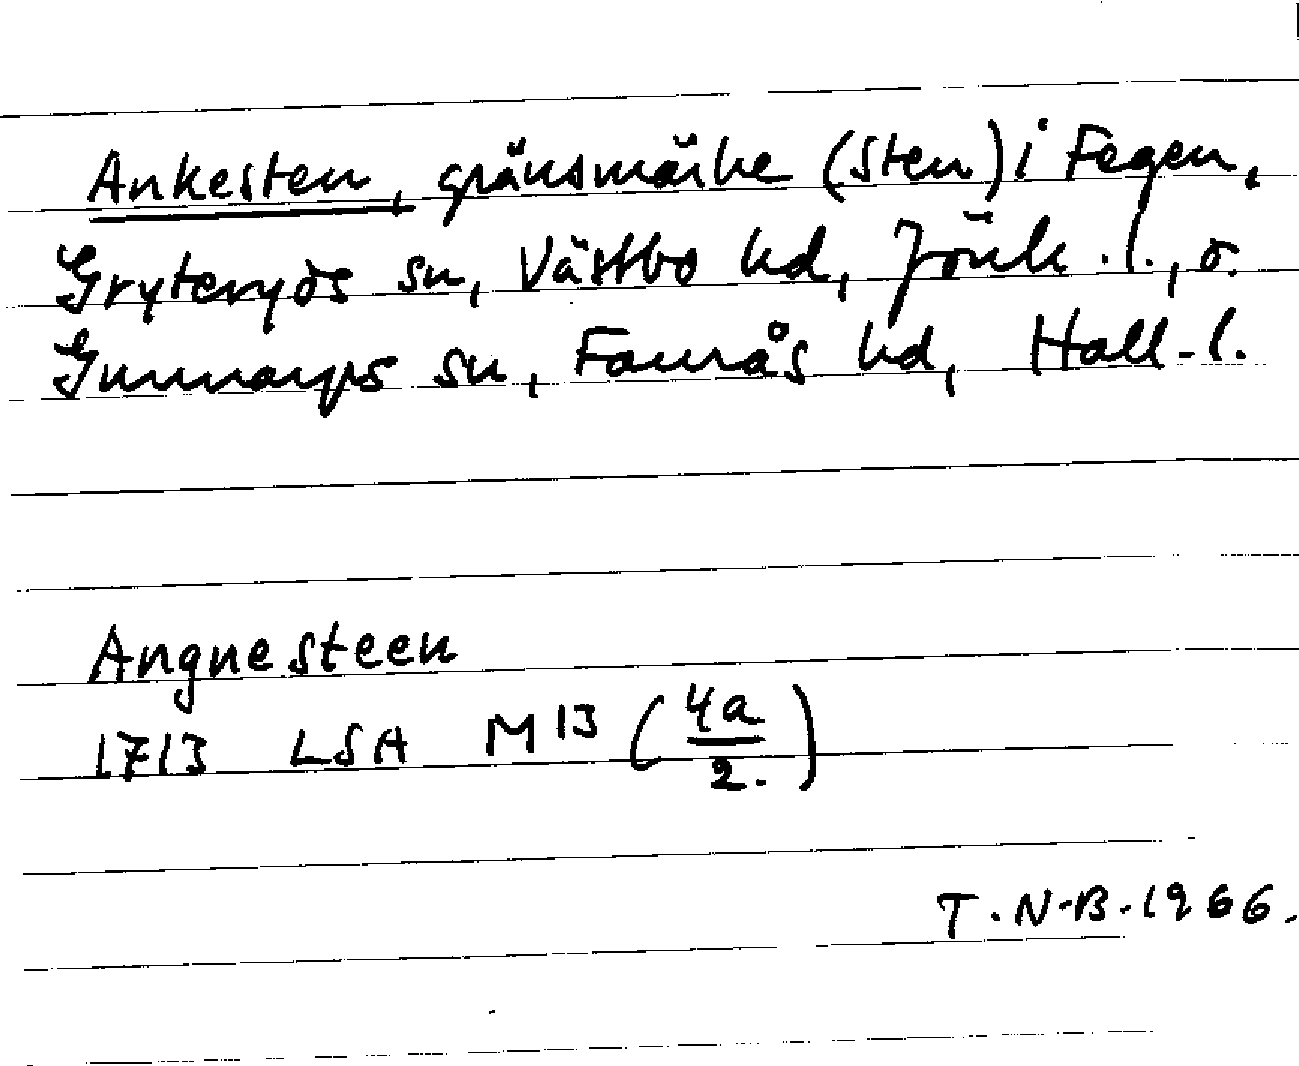 Ankesten, gränsmärke (sten) i Fegen,
Gryteryds sn, Västbo hd, Jönk. l., o.
Gunnarps sn, Faurås hd, Hall. l.
Angnesteen
1713 LSA M 13 (4a/2.)
T. N-B. 1966.